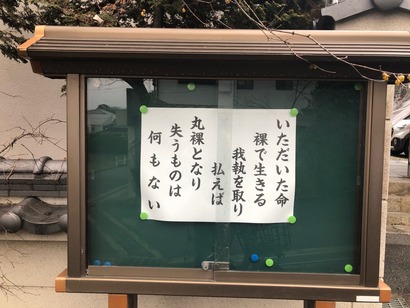 いただいた命
裸で生きる
我執を取り
払えば
丸裸となり
失うものは
何もない